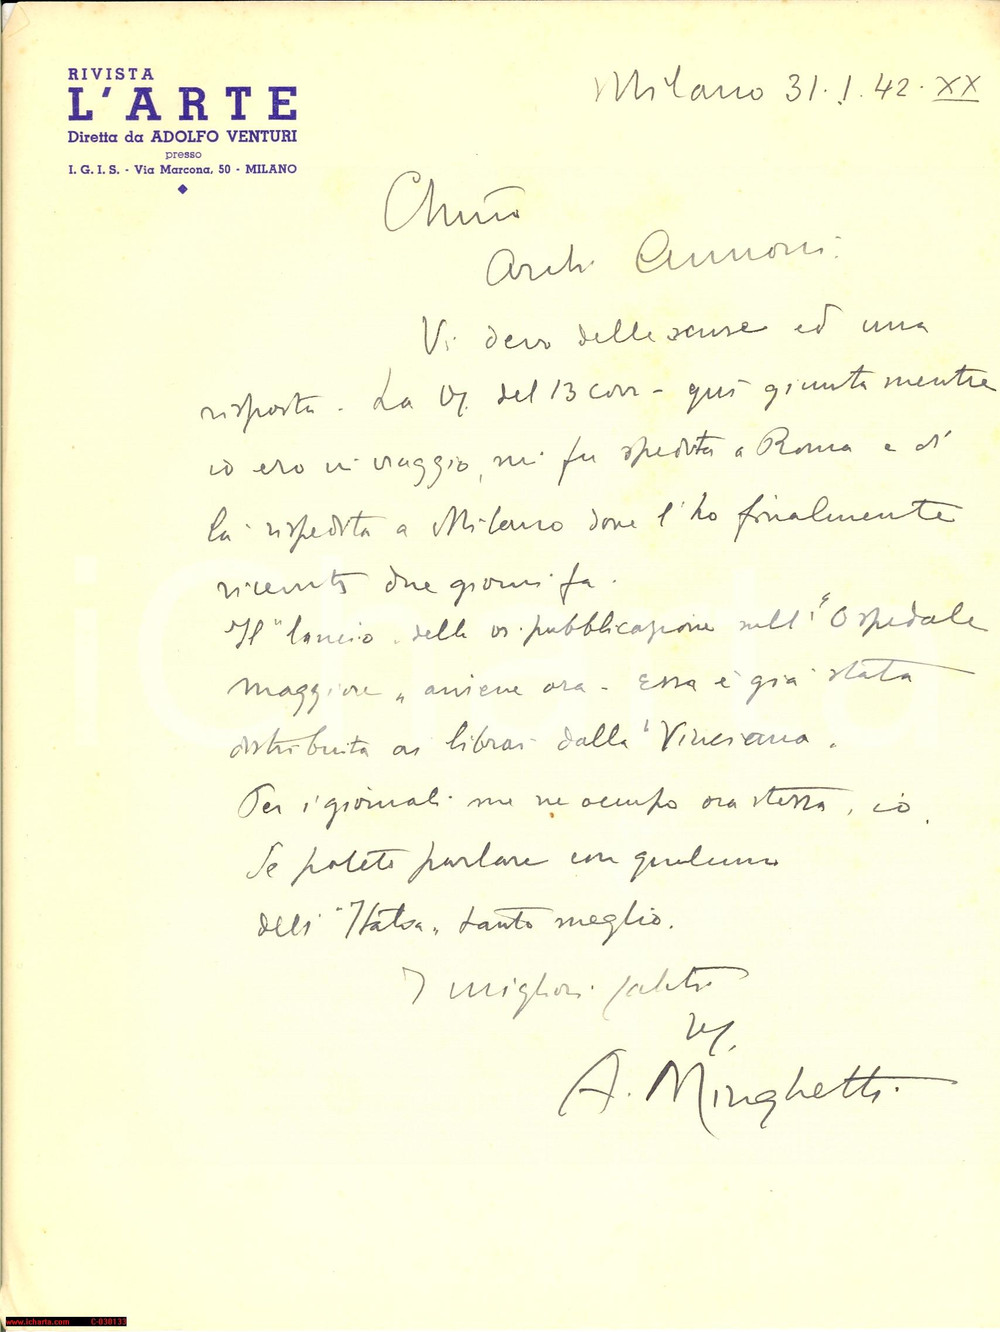 RIVISTA
L'ARTE
Diretta da ADOLFO VENTURI
presso
I. G. I. S. - Via Marcona, 50 - MILANO
Milano 31.1.42.XX
Ch.mo
Arch. Annoni.
Vi devo delle scuse ed una
risposta. La Vs. del 13 corr - qui giunta mentre
io ero in viaggio, mi fu spedita a Roma e di
là rispedita a Milano dove l'ho finalmente
ricevuta due giorni fa.
Il "lancio" della vs. pubblicazione sull'"Ospedale
Maggiore" avviene ora - Essa è già stata
distribuita ai librai dalla "Vinciana".
Per i giornali me ne occupo ora stesso, io.
Se potete parlare con qualcuno
dell' tanto meglio.
I migliori saluti
A. Minghetti
iCharta
www.icharta.com C-030133